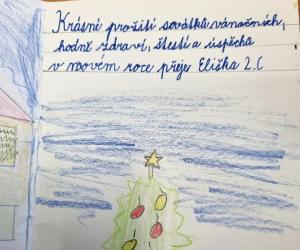 Krásné prožití sovátků vánočních,
hodně zdraví, štestí a úspěchů
v novém roce přeje Eliška 2.C